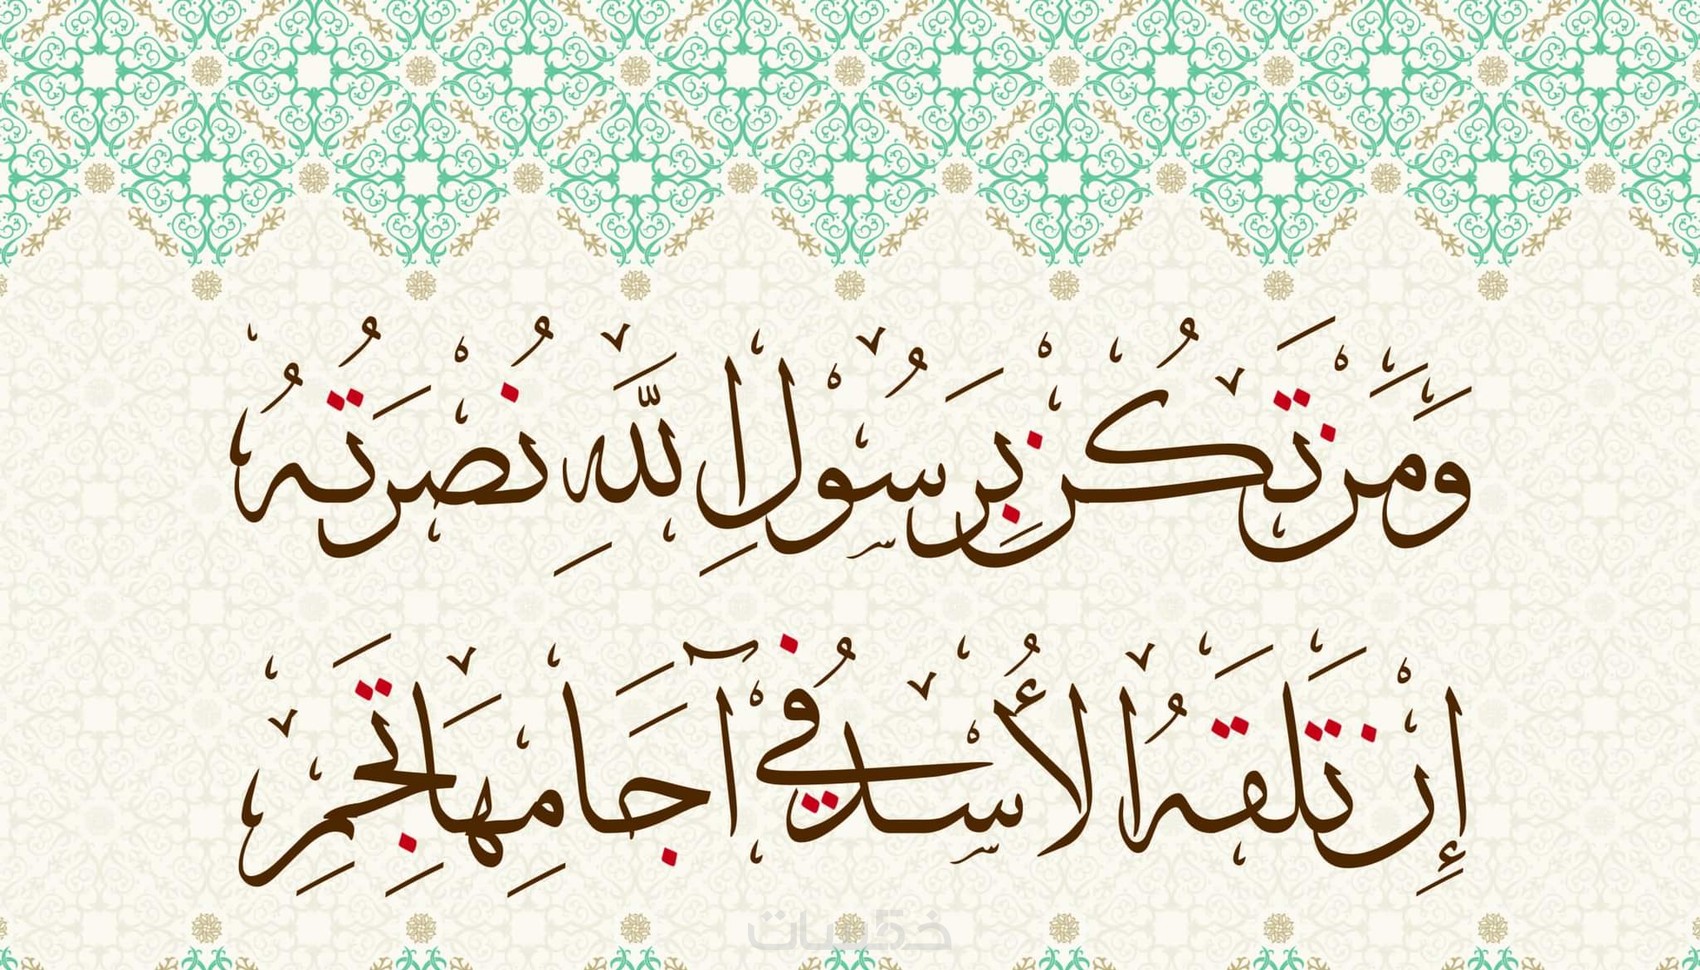 وَمَنْ تَكُنْ بِرَسُولِ اللَّهِ نُصْرَتُهُ
إِنْ تَلْقَهُ الْأُسْدُ فِي آجَامِهَا تَجِمِ
خمسات